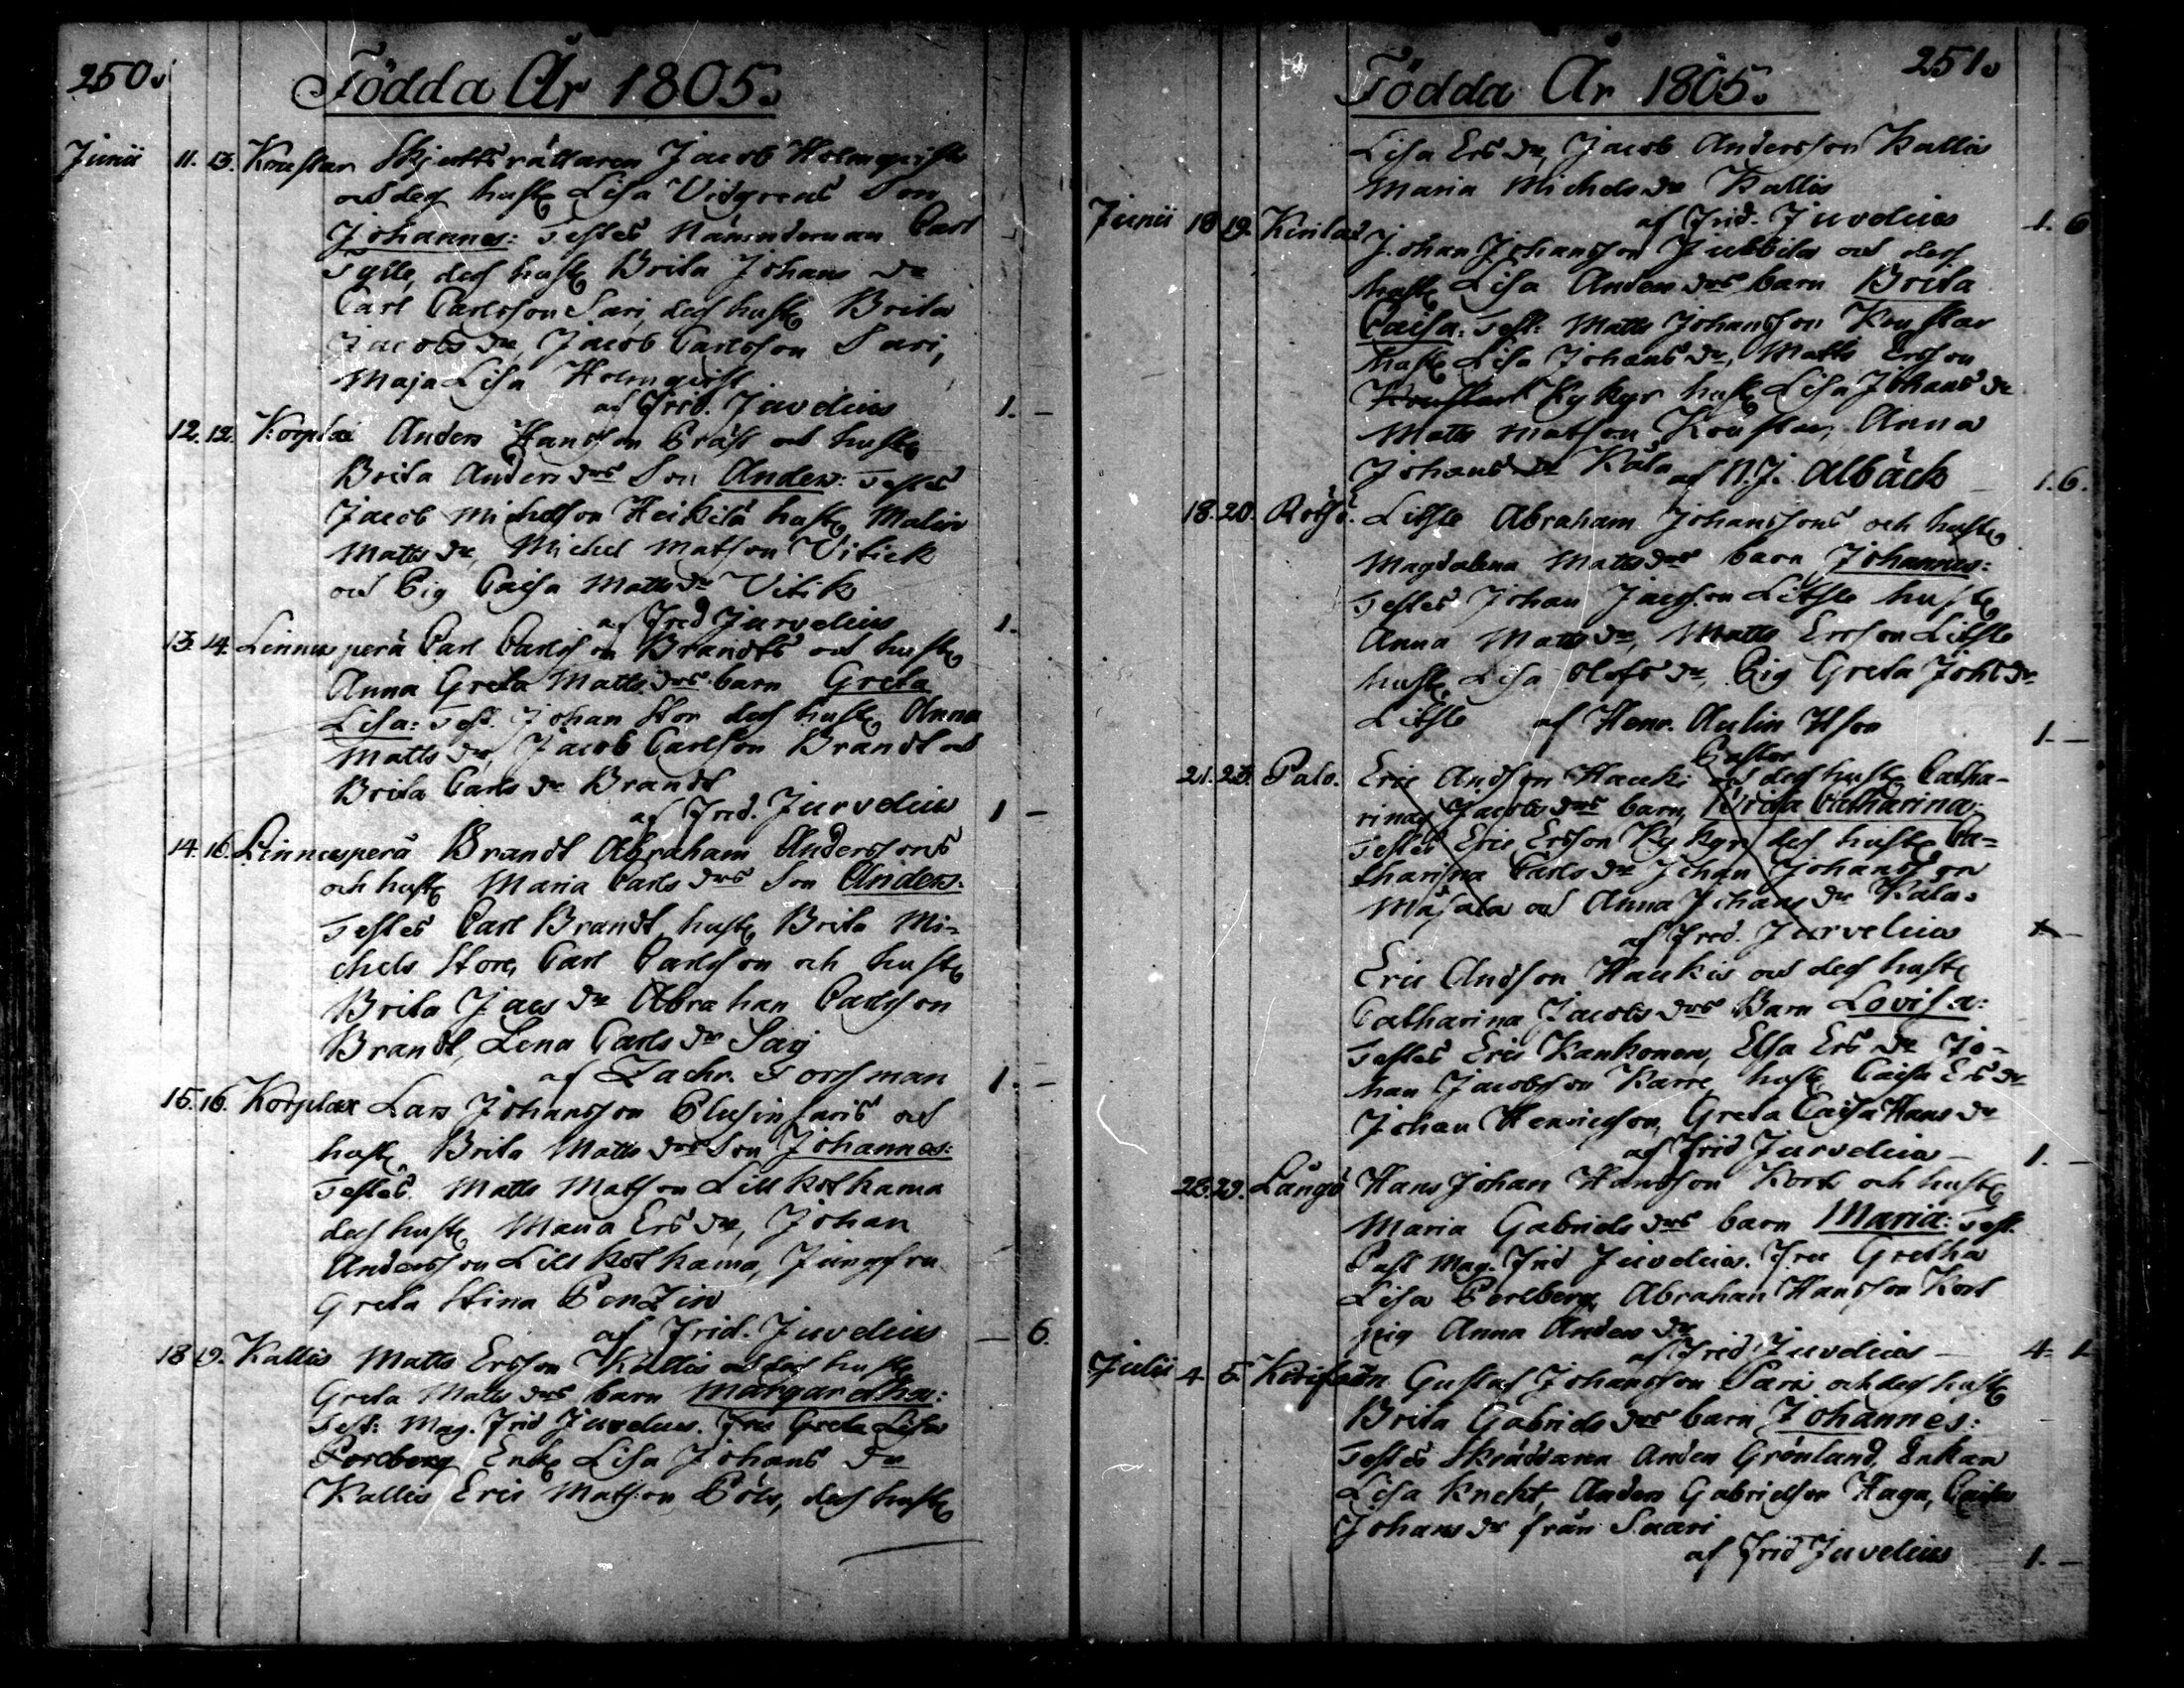 250.
Födda År 1805.
Junii 11. 13. Koustar Skjuttsrättaren Jacob Holmqvist
och dess hust. Lisa Vidgrens Son
Johannes: Testes Nämndeman Carl
dess hust. Brita Johans dr
Carl Carlsson Sari, dess hust. Brita
Jacobs dr, Jacob Carlsson Sari,
Maja Lisa Holmqvist
af Frid. Juvelius 1. –
12. 12. Korplax Anders Hansson Präst och hust.
Brita Anders drs Son Anders: Testes
Jacob Michelson Heikilä hust. Malin
Matts dr, Michel Matsson Vitick
och Pig Caisa Matts dr Vitik
af Fred Jurvelius 1.
13. 14. Linnusperä Carl Carlsson Brandts och hust.
Anna Greta Matts drs barn Greta
Lisa: Test. Johan Stor dess hust. Anna
Matts dr, Jacob Carlsson Brandt och
Brita Carls dr Brandt
af Fred. Jurvelius 1 –
14. 16. Linnusperä Brandt Abraham Anderssons
och hust. Maria Carls drs Son Anders:
Testes Carl Brandt, hust. Brita Mi-
chels Stor, Carl Carlsson och hust.
Brita Jacs dr Abraham Carlsson
Brandt, Lena Carls dr Sarj
af Zachr. Forssman 1. –
15. 16. Korplax Lars Johansson och
hust. Brita Matts drs Son Johannes:
Testes. Matts Matsson Lill Kotkama
dess hust. Maria Ers dr, Johan
Andersson Lill Kotkama, Jungfru
Greta Stina
af Frid. Juvelius – 6.
18 19. Kallis Matts Ersson Kallis och dess hust.
Greta Matts drs barn Margaretha:
Test: Mag. Frid Juvelius. Fru Greta Lisa
Porlberg Enk. Lisa Johans dr
Kallis Eric Matsson dess hust.
251.
Födda År 1805.
Lisa Ers dr, Jacob Andersson Kallis
Maria Michels dr Kallis
af Frid. Juvelius 1. 6
Junii 18 19. Johan Johansson Jubbila och dess
hust. Lisa Anders drs barn Brita
Caisa: Test: Matts Johansson Koustar
hust. Lisa Johans dr, Matts Ersson
Koustar Kykyr hust. Lisa Johans dr
Matts Matsson Koustar, Anna
Johans dr Kala af N. J. Albäck – 1. 6.
18. 20. Rötsö. Litsle Abraham Johanssons och hust.
Magdalena Matts drs barn Johannes:
Testes Johan Jacsson Litsle hust.
Anna Matts dr, Matts Ersson Litsle
hust. Lisa Olofs dr, Pig Greta Johs dr
Litsle af Henr. Aulin Hson
Pastor 1. –
21. 23. Palo. Eric Andsson Hauki och dess hust. Catha-
rinas Jacobs drs barn, Brita Catharina:
Testes Eric Ersson Kykyr, dess hust. Ca-
tharina Carls dr Johan Johansson
Majala och Anna Johans dr Kala.
af Fred. Jurvelius 1. –
Eric Andsson Haukis och dess hust.
Catharina Jacobs drs Barn Lovisa:
Testes Eric Kankonen, Elsa Ers dr Jo-
han Jacobsson Karre, hust. Caisa Ers dr
Johan Henricsson, Greta Caisa Hans dr
af Frid Jurvelius – 1. –
28. 29. Långö Hans Johan Hansson Kort och hust.
Maria Gabriels drs barn Maria: Test.
Past Mag. Frid Juvelius. Fru Gretha
Lisa Porlberg, Abraham Hansson Kort
pig Anna Anders dr
af Frid Juvelius – 4. 1.
Julii 4. 5. Gustaf Johansson Sari och dess hust.
Brita Gabriels drs barn Johannes:
Testes Skräddaren Anders Grönland, Enkan
Lisa Knekt, Anders Gabrielson Haga, Caisa
Johans dr från Saari
af Frid Juvelius 1. –